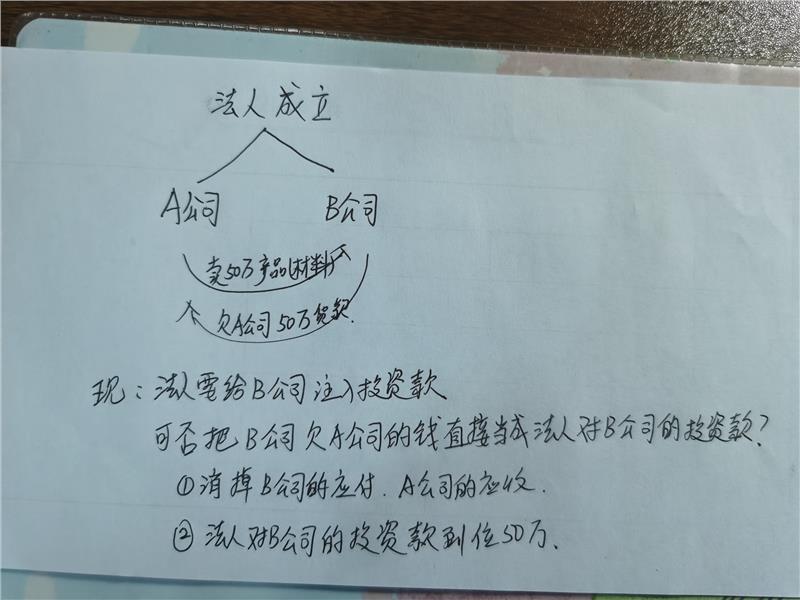 法人成立
A公司 B公司
卖50万产品(材料)
欠A公司50万货款.
现:法人要给B公司注入投资款
可否把B公司欠A公司的钱直接当成法人对B公司的投资款?
①消掉B公司的应付.A公司的应收.
②法人对B公司的投资款到位50万.